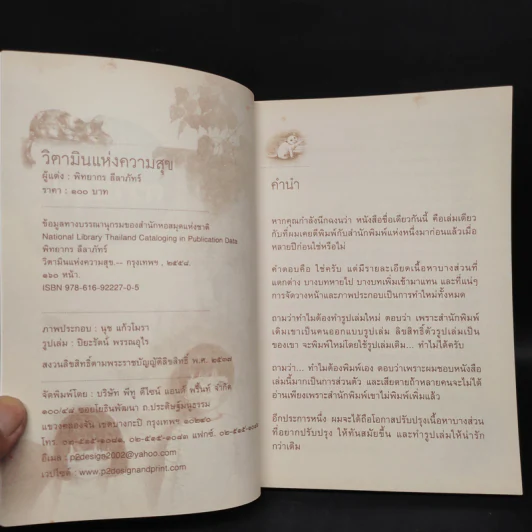 วิตามินแห่งความสุข
ผู้แต่ง : พิทยากร ลีลาภัทร์
ราคา : ๑๐๐ บาท
ข้อมูลทางบรรณานุกรมของสำนักหอสมุดแห่งชาติ
National Library Thailand Cataloging in Publication Data
พิทยากร ลีลาภัทร์
วิตามินแห่งความสุข.-- กรุงเทพฯ , ๒๕๕๔.
๑๖๐ หน้า.
ISBN 978-616-92227-0-5
ภาพประกอบ : นุช แก้วโมรา
รูปเล่ม : ปิยะรัตน์ พรรณอุไร
สงวนลิขสิทธิ์ตามพระราชบัญญัติลิขสิทธิ์ พ.ศ. ๒๕๓๗
จัดพิมพ์โดย : บริษัท พีทู ดีไซน์ แอนด์ พริ้นท์ จำกัด
๑๐๐/๔๔ ซอยโยธินพัฒนา ถ.ประดิษฐ์มนูธรรม
แขวงคลองจั่น เขตบางกะปิ กรุงเทพฯ ๑๐๒๔๐
อีเมล : p2design2002@yahoo.com
เวปไซด์ : www.p2designandprint.com
คำนำ
หากคุณกำลังนึกฉงนว่า หนังสือชื่อเดียวกันนี้ คือเล่มเดียว
กับที่ผมเคยตีพิมพ์กับสำนักพิมพ์แห่งหนึ่งมาก่อนแล้วเมื่อ
หลายปีก่อนใช่หรือไม่
คำตอบคือ ใช่ครับ แต่มีรายละเอียดเนื้อหาบางส่วนที่
แตกต่าง บางบทหายไป บางบทเพิ่มเข้ามาแทน และที่แน่ๆ
การจัดวางหน้าและภาพประกอบเป็นการทำใหม่ทั้งหมด
ถามว่าทำไมต้องทำรูปเล่มใหม่ ตอบว่า เพราะสำนักพิมพ์
เดิมเขาเป็นคนออกแบบรูปเล่ม ลิขสิทธิ์ตัวรูปเล่มเป็น
ของเขา จะพิมพ์ใหม่โดยใช้รูปเล่มเดิม... ทำไม่ได้ครับ
ถามว่า... ทำไมต้องพิมพ์เอง ตอบว่าเพราะผมชอบหนังสือ
เล่มนี้มากเป็นการส่วนตัว และเสียดายถ้าหลายคนจะไม่ได้
อ่านเพียงเพราะสำนักพิมพ์เขาไม่พิมพ์เพิ่มแล้ว
อีกประการหนึ่ง ผมจะได้ถือโอกาสปรับปรุงเนื้อหาบางส่วน
ที่อยากปรับปรุง ให้ทันสมัยขึ้น และทำรูปเล่มให้น่ารัก
กว่าเดิม